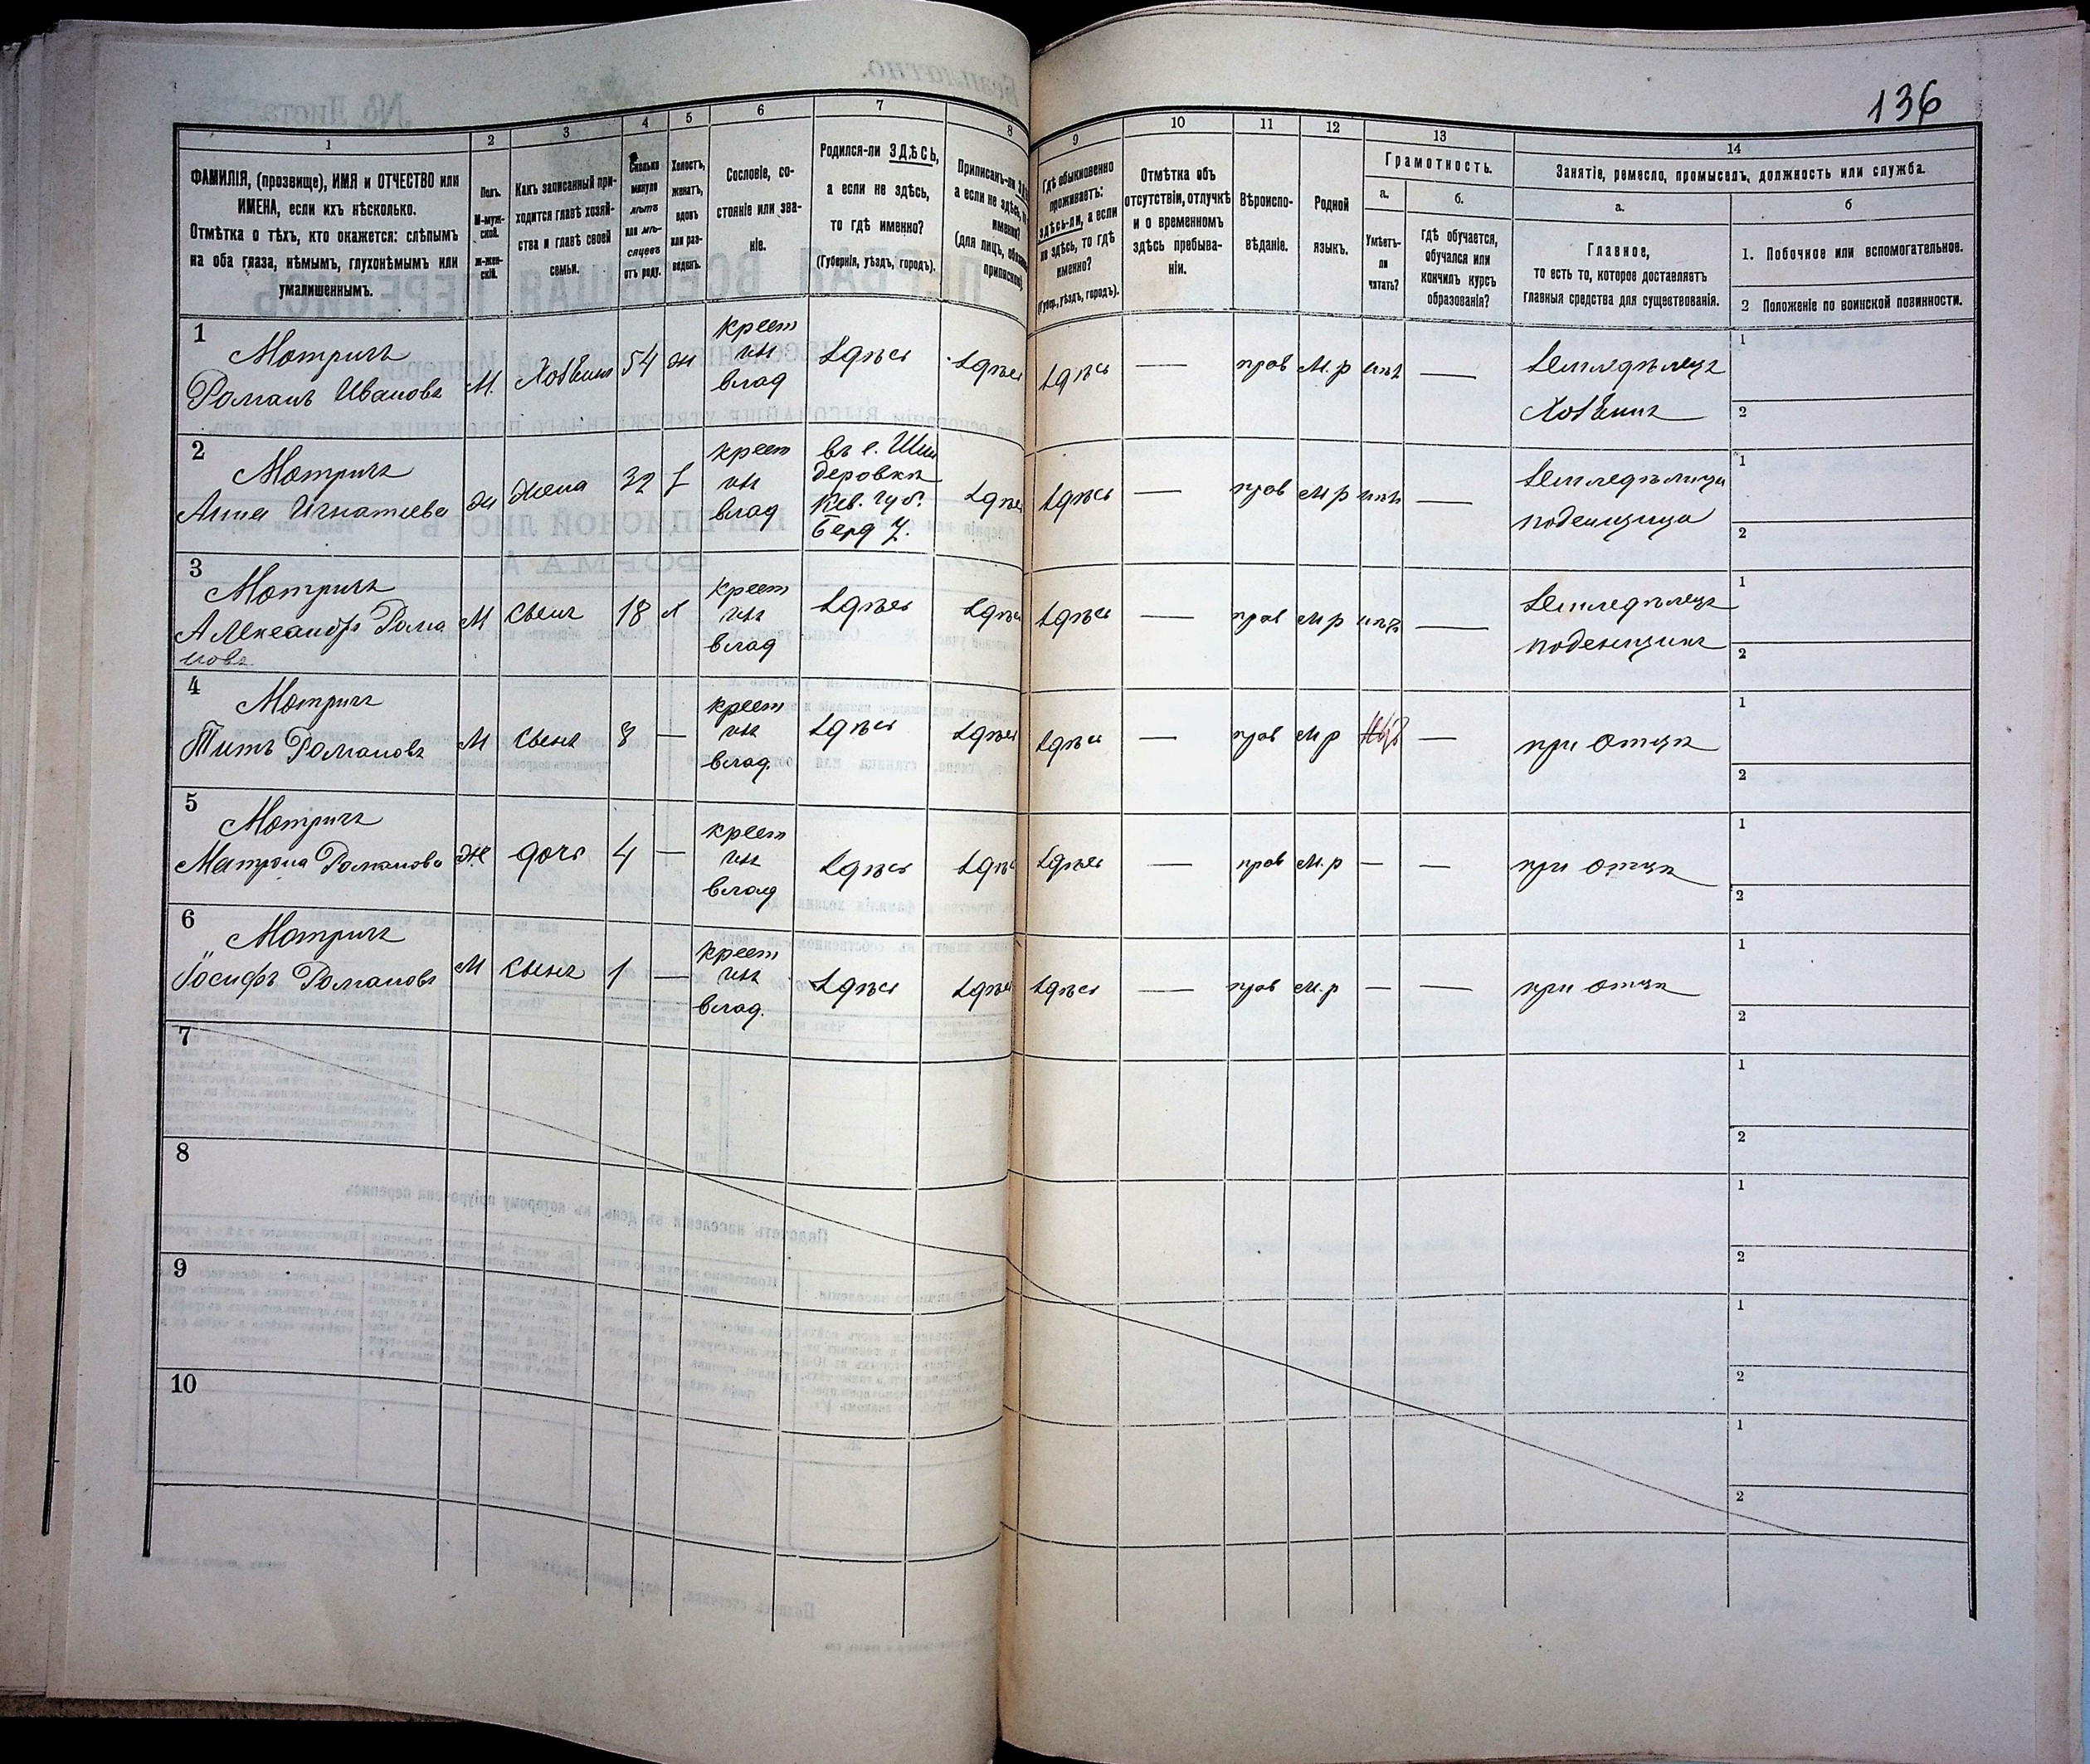 136
1
2
3
4
5
6
7
8
9
10
11
12
13
14
ФАМИЛІЯ, (прозвище), ИМЯ и ОТЧЕСТВО или
ИМЕНА, если ихъ нѣсколько.
Отмѣтка о тѣхъ, кто окажется: слѣпымъ
на оба глаза, нѣмымъ, глухонѣмымъ или
умалишеннымъ.
Полъ.
М-муж-
ской.
ж-жен-
скій.
Какъ записанный при-
ходится главѣ хозяй-
ства и главѣ своей
семьи.
Сколько
минуло
лѣтъ
или мѣ-
сяцевъ
отъ роду.
Холостъ,
женатъ,
вдовъ
или раз-
веденъ.
Сословіе, со-
стояніе или зва-
ніе.
Родился-ли ЗДѢСЬ,
а если не здѣсь,
то гдѣ именно?
(Губернія, уѣздъ, городъ).
Приписанъ-ли
а если не здѣсь,
Гдѣ обыкновенно
проживаетъ:
здѣсь-ли, а если
не здѣсь, то гдѣ
именно?
(Губер., уѣздъ, городъ).
Отмѣтка объ
отсутствіи, отлучкѣ
и о временномъ
здѣсь пребыва-
ніи.
Вѣроиспо-
вѣданіе.
Родной
языкъ.
Грамотность.
а.
Умѣетъ-
ли
читать?
б.
гдѣ обучается,
обучался или
кончилъ курсъ
образованія?
Занятіе, ремесло, промыселъ, должность или служба.
а.
Главное,
то есть то, которое доставляетъ
главныя средства для существованія.
б
1. Побочное или вспомогательное.
2 Положеніе по воинской повинности.
1
Мотричъ
Романъ Ивановъ
М. Хозяинъ 54 ж
крест
изъ
влад
Здѣсь Здѣсь Здѣсь — прав М.р нѣтъ —
Земледѣлецъ
Хозяинъ
1
2
2
Мотричъ
Анна Игнатиева
ж жена 32 з
крест
изъ
влад
въ с. Шен
деровкѣ
Кев. губ.
Берд У.
Здѣсь Здѣсь — прав м р нѣтъ —
Земледѣлица
поденщица
1
2
3
Мотричъ
Александръ Рома
новъ
М сынъ 18 х
крест
изъ
влад
Здѣсь Здѣсь Здѣсь — прав м р нѣтъ —
Земледѣлецъ
поденщикъ
1
2
4
Мотричъ
Титъ Романовъ
М сынъ 8 —
крест
изъ
влад.
Здѣсь Здѣсь Здѣсь — прав м р —
при отцѣ
1
2
5
Мотричъ
Матрона Романова
Ж дочь 4 —
крест
изъ
влад
Здѣсь Здѣсь Здѣсь — прав М.р — —
при отцѣ
1
2
6
Мотричъ
Іосифъ Романовъ
М сынъ 1 —
крест
изъ
влад.
Здѣсь Здѣсь Здѣсь — прав М.р — —
при отцѣ
1
2
7
1
2
8
1
2
9
1
2
10
1
2